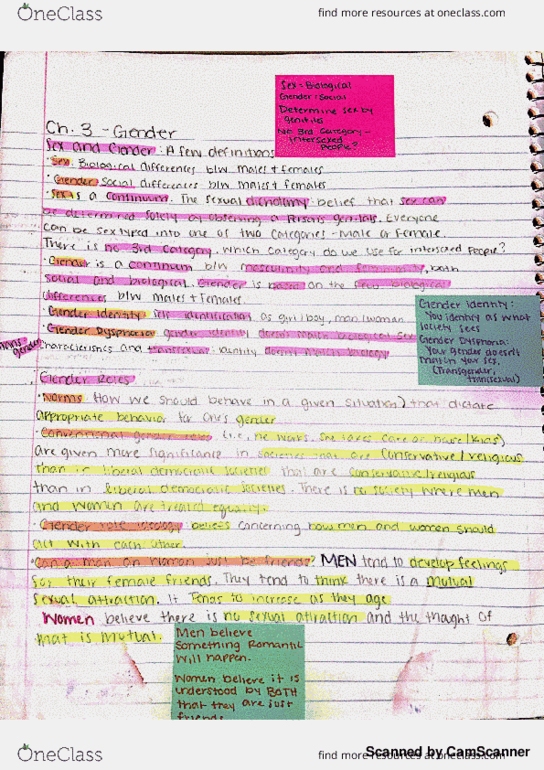 OneClass
find more resources at oneclass.com
Sex = Biological
Gender = Social
Determine sex by
genitilis
No 3rd category -
intersexed
people?
Ch. 3 - Gender
Sex and Gender: A few definitions
· Sex: Biological differences b/w males + females
· Gender: Social differences b/w males + females
· Sex is a continuum. The sexual dichotomy belief that sex can
be determined solely by observing a persons genitals. Everyone
can be sex typed into one of two categories - male or female.
There is no 3rd category. Which category do we use for intersexed people?
· Gender is a continuum b/w masculinity and femininity, both
social and biological. Gender is based on the few biological
differences b/w males + females.
· Gender identity self identification as girl/boy, man/woman
· Gender Dysphoria gender identity doesn't match biological sex
characteristics and transsexual identity doesn't match biology
trans gender
Gender Identity:
You identify as what
society sees
Gender Dysmoria:
Your gender doesn't
match your sex.
(Transgender,
transexual)
Gender Roles
· Norms How we should behave in a given situation) that dictate
appropriate behavior for one's gender
· Conventional gender roles (i.e., he works, she takes care of house/kids)
are given more significance in societies that are conservative/religious
than in liberal democratic societies that are conservative/religious
than in liberal democratic societies. There is no society where men
and women are treated equally.
· Gender role ideology beliefs concerning how men and women should
act with each other.
· Can a man an woman just be friends? MEN tend to develop feelings
for their female friends. They tend to think there is a mutual
sexual attraction. It tends to increase as they age
Women believe there is no sexual attraction and the thought of
that is mutual.
Men believe
something romantic
will happen.
Women believe it is
understood by BOTH
that they are just
friends
OneClass
find more resources at oneclass.com
Scanned by CamScanner